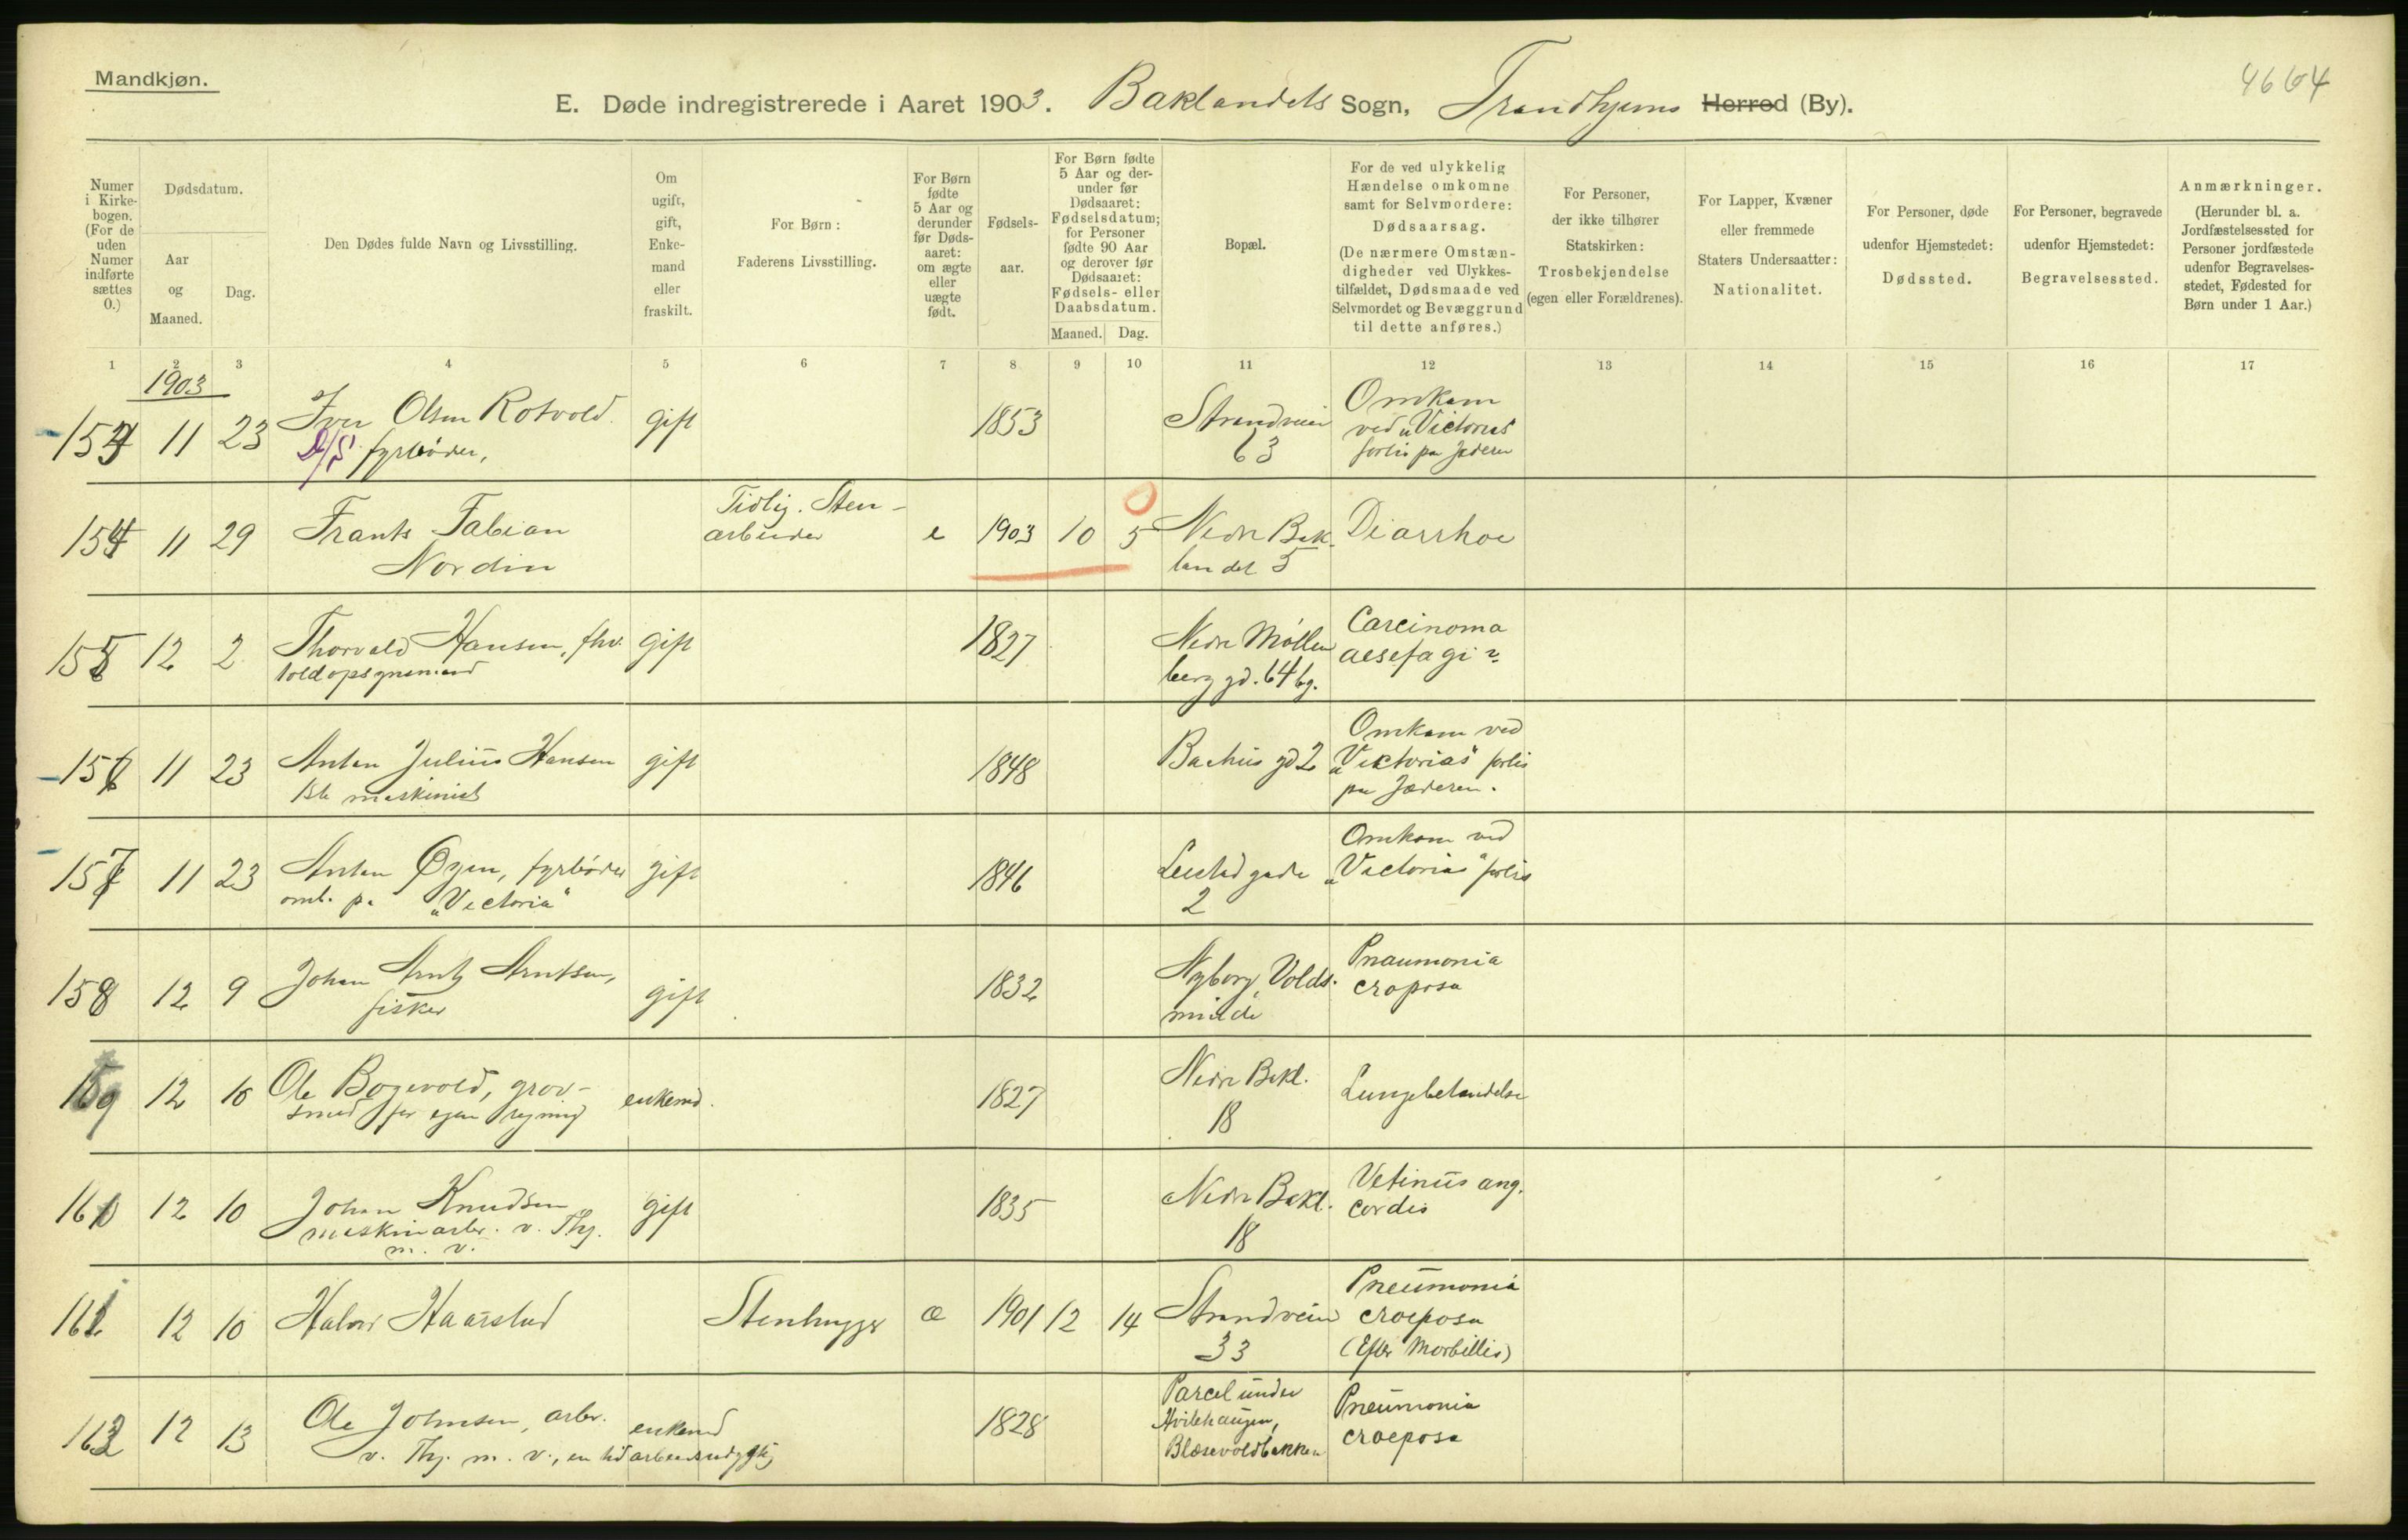 Mandkjøn.
4664
E. Døde indregistrerede i Aaret 1903. Baklandets Sogn, Trondhjems Herred (By).
Numer i Kirkebogen. (For de uden Numer indførte sættes 0.)
Dødsdatum.
Aar og Maaned.
Dag.
Den Dødes fulde Navn og Livsstilling.
Om ugift, gift, Enkemand eller fraskilt.
For Børn: Faderens Livsstilling.
For Børn fødte 5 Aar og derunder før Dødsaaret: om ægte eller uægte født.
Fødselsaar.
For Børn fødte 5 Aar og derunder før Dødsaaret: Fødselsdatum; for Personer fødte 90 Aar og derover før Dødsaaret: Fødsels- eller Daabsdatum.
Maaned. Dag.
Bopæl.
For de ved ulykkelig Hændelse omkomne samt for Selvmordere: Dødsaarsag. (De nærmere Omstændigheder ved Ulykkestilfældet, Dødsmaade ved Selvmordet og Bevæggrund til dette anføres.)
For Personer, der ikke tilhører Statskirken: Trosbekjendelse (egen eller Forældrenes).
For Lapper, Kvæner eller fremmede Staters Undersaatter: Nationalitet.
For Personer, døde udenfor Hjemstedet: Dødssted.
For Personer, begravede udenfor Hjemstedet: Begravelsessted.
Anmærkninger. (Herunder bl. a. Jordfæstelsessted for Personer jordfæstede udenfor Begravelsesstedet, Fødested for Børn under 1 Aar.)
1 2 3 4 5 6 7 8 9 10 11 12 13 14 15 16 17
1903
153 11 23 Iver Olsen Rotvold. gift 1853 Strandveien Omkom
D/S fyrbøder, 63 ved "Victorias"
forlis paa Jæderen
154 11 29 Frants Fabian Tidlig. Sten-
arbeider e 1903 10 5 Nedre Bak- Diarrhoe
Nordin landet 5
155 12 2 Thorvald Hansen, fhv. gift 1827 Nedre Møllen Carcinoma
toldopsynsmand berg gd. 64 bg. aesefagi
156 11 23 Anton Julius Hansen gift 1848 Bachus gd 2 Omkom ved
1ste maskinist "Victorias" forlis
paa Jæderen.
157 11 23 Anton Øyen, fyrbøder gift 1846 Leistad gade Omkom ved
omb. p. "Victoria" 2 "Victorias" forlis
158 12 9 Johan Arnt Arntsen, gift 1832 Nyborg, Volds- Pnaumonia
fisker minde croposa
159 12 10 Ole Bogevold, grov- enkemd. 1827 Nedre Bakl. Lungebetændelse
smed for egen regning 18
160 12 10 Johan Knudsen gift 1835 Nedre Bakl. Vetinus ang.
maskinarb. v. Thj. 18 cordis
m. v.
161 12 10 Halvor Haarstad Stenhugger æ 1901 12 14 Strandveien Pneumonia
33 croeposa
(Efter Morbillis)
162 12 13 Ole Johnsen, arb. enkemd 1828 Parcel under Pneumonia
v. Thj. m. v., en tid arbeidsudygtig Hvilehaugen, croeposa
Blæsevoldbakken